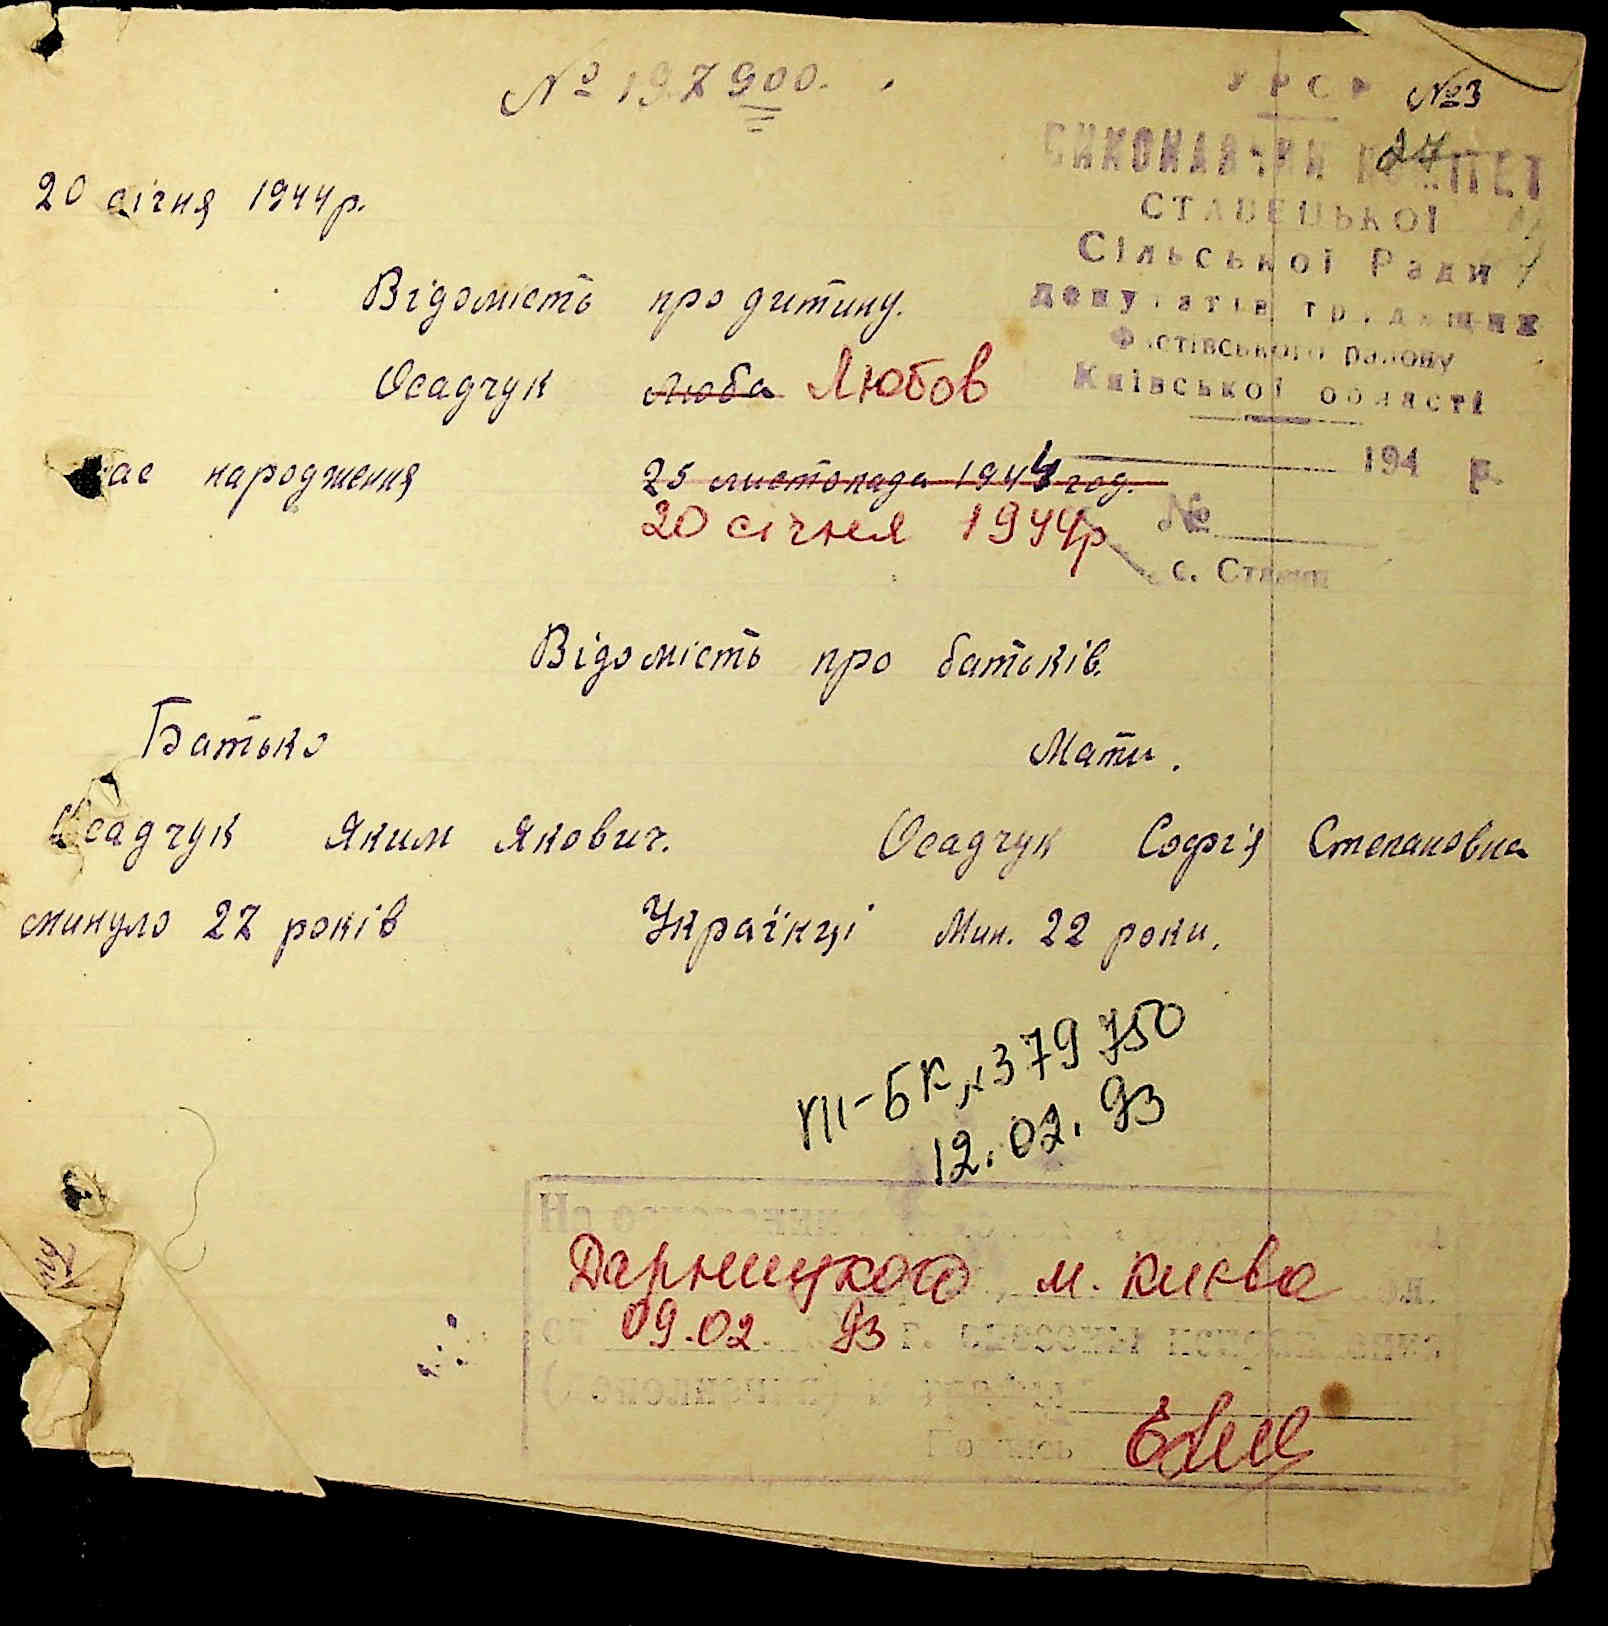 № 197900.
УРСР
№3
27
ВИКОНАВЧИЙ КОМІТЕТ
СТАВЕЦЬКОЇ
Сільської Ради
депутатів трудящих
Фастівського району
Київської області
194 р.
№
с. Стави
20 січня 1944р.
Відомість про дитину.
Осадчук Люба Любов
Час народження 25 листопада 1944 год.
20 січня 1944р
Відомість про батьків.
Батько Мати.
Осадчук Яким Якович. Осадчук Софія Степановна
минуло 27 років Українці Мин. 22 роки.
III-БК № 379750
12.02.93
На основании
Дарницкого м. Киева
от 09.02. 93 г. внесены исправления
(дополнения) в графы
Подпись